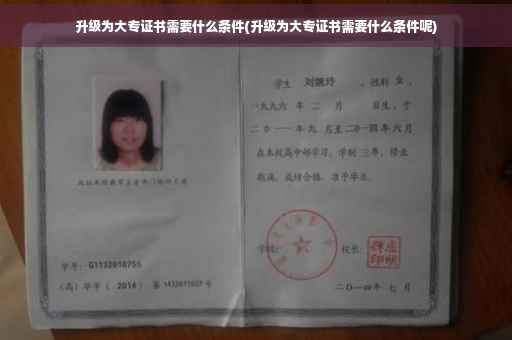 升级为大专证书需要什么条件(升级为大专证书需要什么条件呢)
学号: G1132010755
(高) 毕字 ( 2014 ) 第 1432011027 号
学生 刘婉玲 , 性别 女 ,
一九九六 年 二 月 日生, 于
二〇一一 年 九 月至 二〇一四 年 六 月
在本校高中部学习, 学制 三年, 修业
期满, 成绩合格, 准予毕业。
学校:
校长:
二〇一四 年 七 月